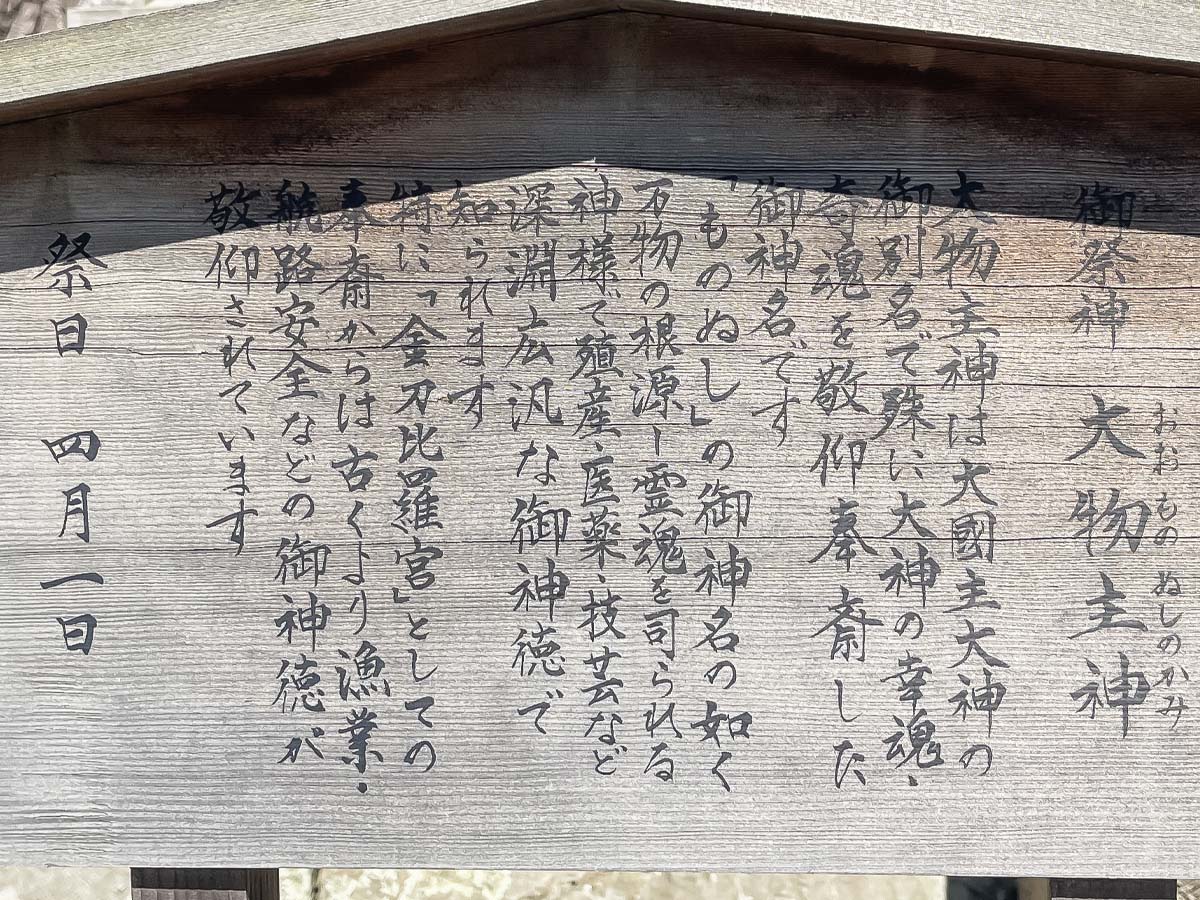 御祭神 大物主神
おおものぬしのかみ
大物主神は大國主大神の
御別名で殊に大神の幸魂・
奇魂を敬仰奉斎した
御神名です
「ものぬし」の御神名の如く
万物の根源―霊魂を司られる
神様で殖産・医薬・技芸など
深淵広汎な御神徳で
知られます
特に「金刀比羅宮」としての
奉斎からは古くより漁業・
航路安全などの御神徳が
敬仰されています
祭日 四月一日